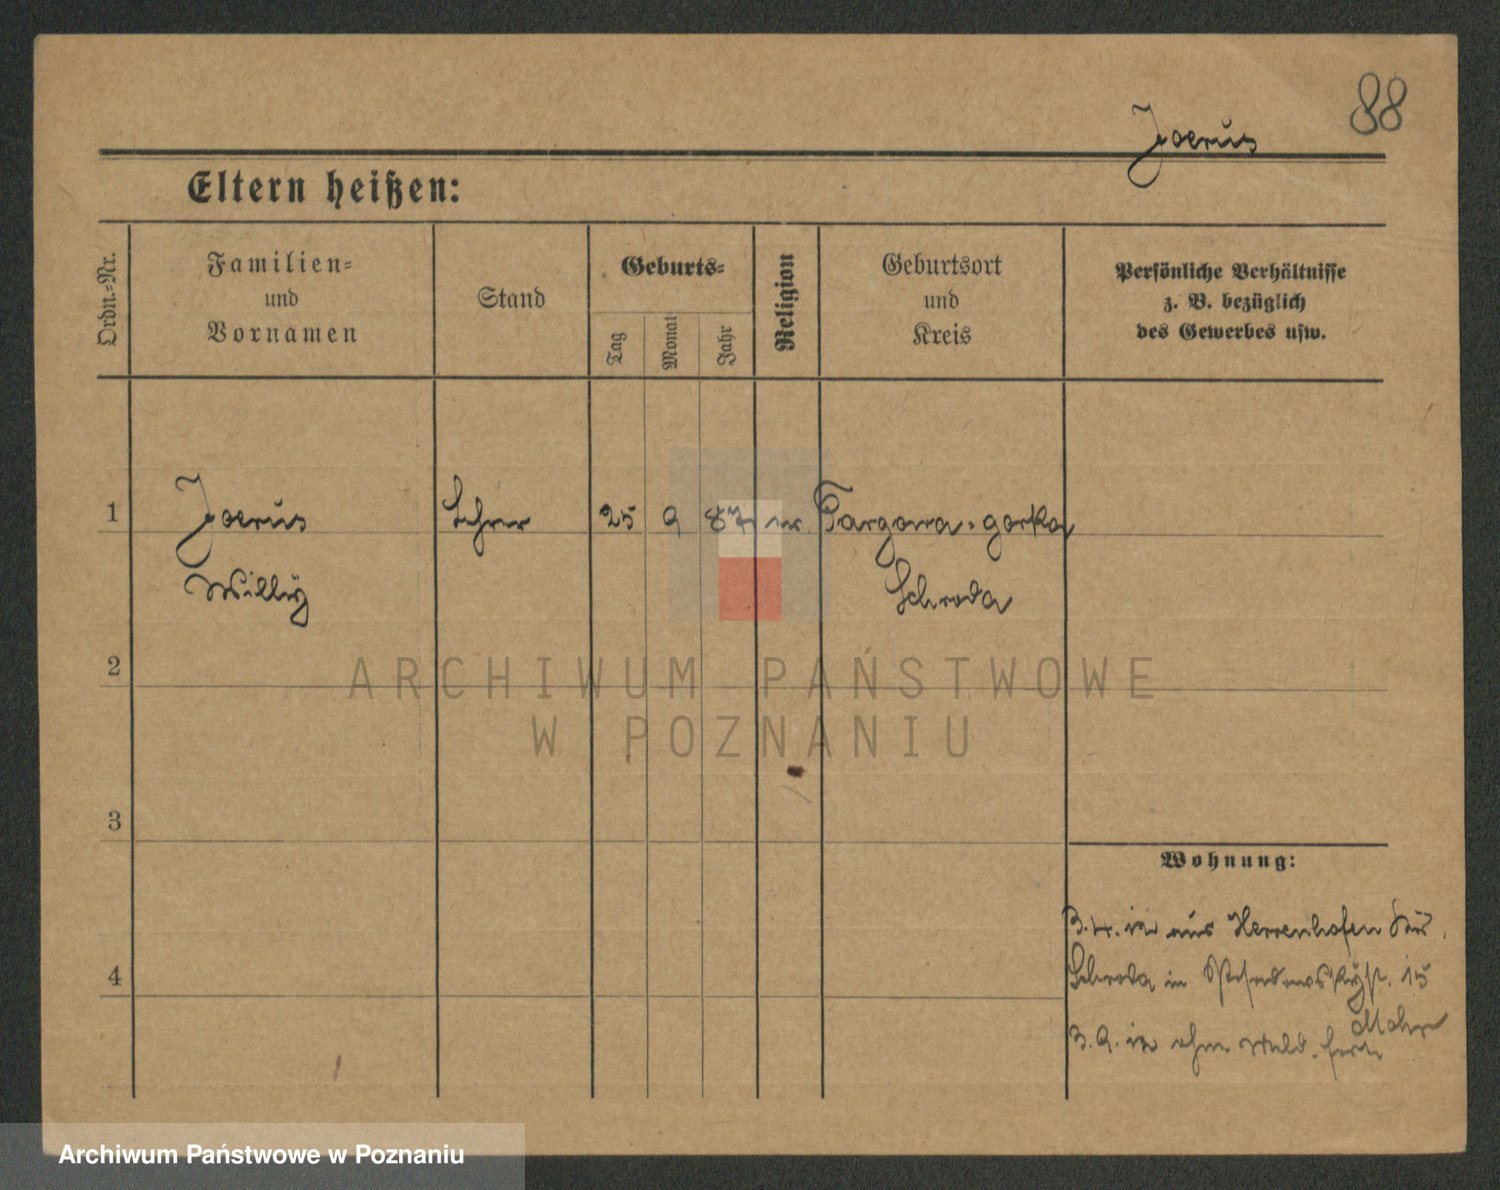 88
Joerüs
Eltern heißen:
Ordn.-Nr.
Familien-
und
Vornamen
Stand
Geburts-
Tag
Monat
Jahr
Religion
Geburtsort
und
Kreis
Persönliche Verhältnisse
z. B. bezüglich
des Gewerbes usw.
1
Joerüs Lehrer 25 9 87 Targowa-gorka
Willy Schroda
2
3
4
Wohnung:
3.4. aus Herrenhofen
Schroda in 15
3.9. ohne
ARCHIWUM PAŃSTWOWE
W POZNANIU
Archiwum Państwowe w Poznaniu